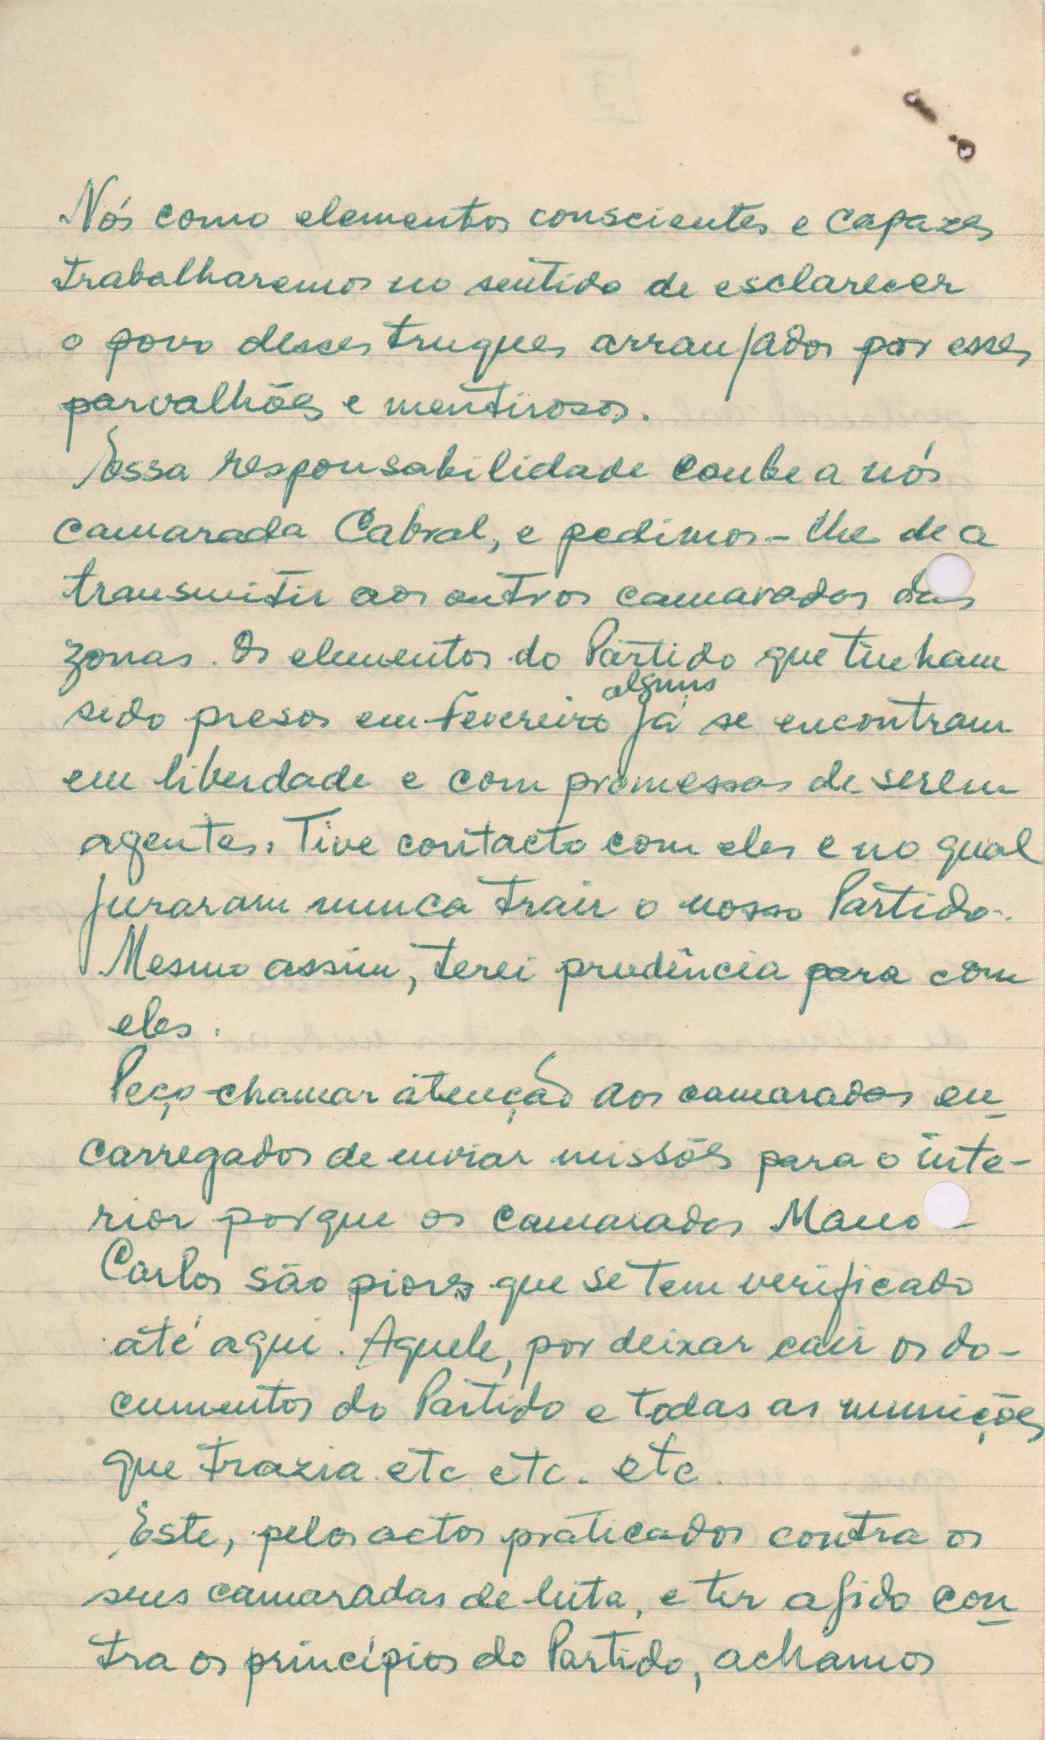 Nós como elementos conscientes e capazes
trabalharemos no sentido de esclarecer
o povo desses truques arranjados por esses
parvalhões e mentirosos.
Essa responsabilidade coube a nós
camarada Cabral, e pedimos-lhe de a
transmitir aos outros camaradas das
zonas. Os elementos do Partido que tinham
sido presos em Fevereiro alguns já se encontram
em liberdade e com promessas de serem
agentes. Tive contacto com eles e no qual
juraram nunca trair o nosso Partido.
Mesmo assim, terei prudência para com
eles.
Peço chamar atenção aos camaradas en-
carregados de enviar missões para o inte-
rior porque os camaradas Mano -
Carlos são piores que se tem verificado
até aqui. Aquele, por deixar cair os do-
cumentos do Partido e todas as munições
que trazia etc etc. etc
Este, pelos actos praticados contra os
seus camaradas de luta, e ter agido con-
tra os princípios do Partido, achamos